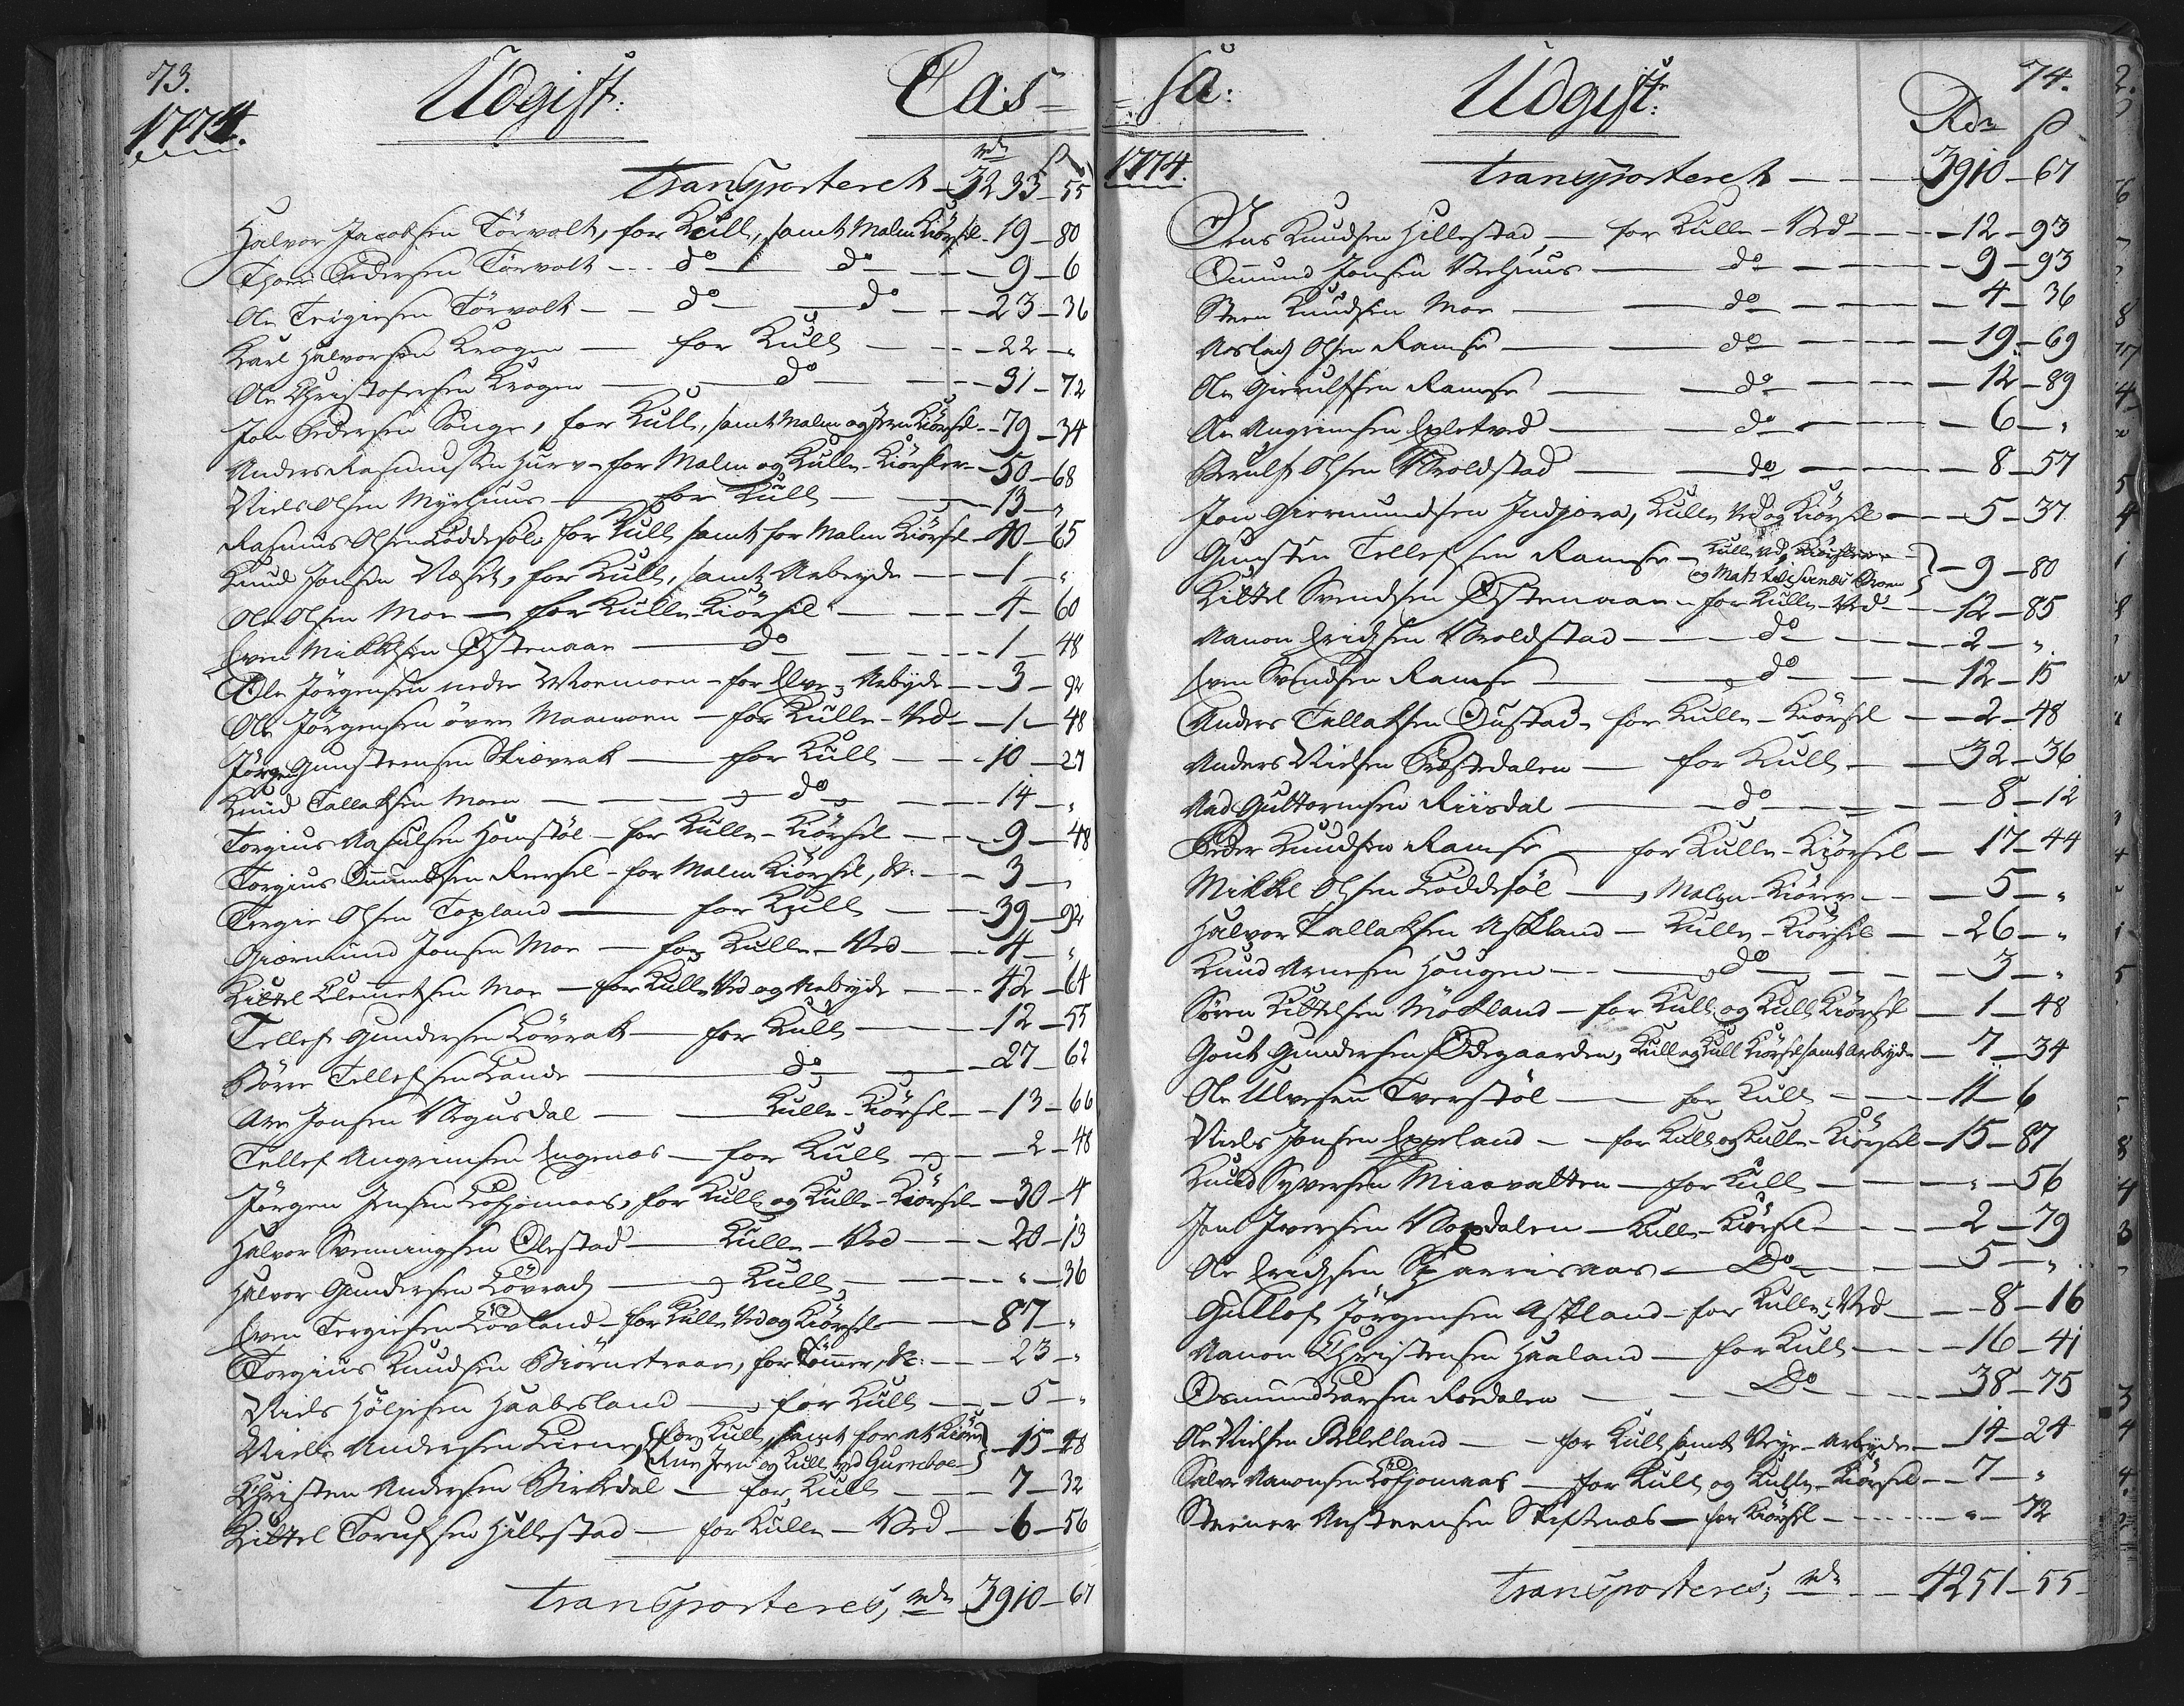 73.
Udgift:
Cas=
1774.
rdr ß
Transporteret - 3233 - 55
Halvor Jacobsen Törvolt, for Kull, samt Malm Kiörsel - 19 - 80
Thore Pedersen Törvolt - - - do - do - - - 9 - 6
Ole Tergiesen Törvolt - - do - do - - 23 - 36
Karl Halvorsen Krogen - for Kull - - 22 - "
Ole Christophersen Krogen - do - - - 31 - 72
Jon Pedersen Songe, for Kull, samt Malm og Jern Kiörsel - 79 - 34
Anders Rasmussen Hurv - for Malm og Kulle-Kiörsler - 50 - 68
Niels Olsen Myrhuus - for Kull - 13 - "
Rasmus Olsen Löddesöl for Kull samt for Malm Kiörsel - 40 - 65
Knud Jonsen Næset, for Kull, samt Arbeyde - 1 - "
Ole Olsen Moe - for Kulle-Kiörsel - 4 - 60
Even Mikkelsen Østenaae - do - 1 - 48
Ole Jörgensen nedre Moemoen - for Elve-Arbeyde - 3 - 92
Ole Jörgensen övre Maamoen - for Kulle-Ved - 1 - 48
Jörgen Gunstensen Skiævrak - for Kull - 10 - 27
Knud Tallaksen Moen - do - 14 - "
Torgius Aasulsen Homstöl - for Kulle-Kiörsel - 9 - 48
Torgius Omundsen Rersel - for Malm Kiörsel, &c. - 3 - "
Tergie Olsen Topland - for Kull - 39 - 92
Giermund Jonsen Moe - for Kulle-Ved - 4 - "
Kittel Clemmetsen Moe - for Kulle Ved og Arbeyde - 42 - 64
Tellef Gundersen Lövrak - for Kull - 12 - 55
Börre Tellefsen Lande - do - 27 - 62
Are Jonsen Vegusdal - Kulle-Kiörsel - 13 - 66
Tellef Angrimsen Engenæs - for Kull - 2 - 48
Jörgen Jensen Lofsjomaas, for Kull og Kulle-Kiörsel - 30 - 4
Halvor Svenningsen Olestad - Kulle-Ved - 20 - 13
Halvor Gundersen Lövrach - Kull - " - 36
Even Tergiesen Lövland - for Kulle Ved og Kiörsel - 87 - "
Torgius Knudsen Biörnetraae, for Tömmer, &c. - 23 - "
Niels Höljesen Haabesland - for Kull - 5 - "
Niels Andersen Liene, {for Kull, samt for at Kiöre
Rue Jern og Kull ved Gurreboe} - 15 - 28
Christen Andersen Birkedal - for Kull - 7 - 32
Kittel Torulfsen Hillestad - for Kulle-Ved - 6 - 56
Transporteres, rdr 3910 - 67
=sa:
Udgift:
74.
1774.
Rdr ß
Transporteret - 3910 - 67
Jens Knudsen Hillestad - for Kulle-Ved - 12 - 93
Omund Jonsen Velhuus - do - 9 - 93
Steen Knudsen Moe - do - 4 - 36
Aaslach Olsen Ramse - do - 19 - 69
Ole Gierulfsen Ramse - do - 12 - 89
Are Angrimsen Epletved - do - 6 - "
Berulf Olsen Voldstad - do - 8 - 57
Jon Giermundsen Indjore, Kulle Ved og Kiörsel - 5 - 37
Gunsten Tellefsen Ramse - Kulle Ved, Kiörsler
og Mats - 9 - 80
Kittel Svendsen Østenaae - for Kulle-Ved - 12 - 85
Aanon Erichsen Voldstad - do - 2 - "
Even Svendsen Ramse - do - 12 - 15
Anders Tallaksen Oustad - for Kulle-Kiörsel - 2 - 48
Anders Nielsen Præstedalen - for Kull - 32 - 36
Aad Guttormsen Riisdal - do - 8 - 12
Peder Knudsen Ramse - for Kulle-Kiörsel - 17 - 44
Mikkel Olsen Löddesöl - Malm-Kiören - 5 - "
Halvor Tallaksen Askland - Kulle-Kiörsel - 26 - "
Knud Arnesen Hougen - do - 3 - "
Sören Kittelsen Mökland - for Kull og Kull Kiörsel - 1 - 48
Gout Gundersen Ødegaarden, Kull og Kull Kiörsel samt arbeyde - 7 - 34
Ole Ulvesen Tverstöl - for Kull - 11 - 6
Niels Jonsen Eppeland - for Kull og Kulle-Kiörsel - 15 - 87
Knud Syversen Miaavatten - for Kull - " - 56
Jens Iversen Vapdalen - Kulle-Kiörsel - 2 - 79
Ole Erichsen Skarrisaas - Do - 5 - "
Gullof Jörgensen Askland - for Kulle-Ved - 8 - 16
Aanon Christensen Haaland - for Kull - 16 - 41
Osmund Larsen Roedalen - Do - 38 - 75
Ole Nielsen Rellelland - for Kull samt Veye-Arbeyde - 14 - 24
Salve Aanonsen Lofsjomaas - for Kull og Kulle-Kiörsel - 7 - "
Steener Austeensen Skiftenæs - for Kiörsel - " - 72
Transporteres, rdr - 4251 - 55